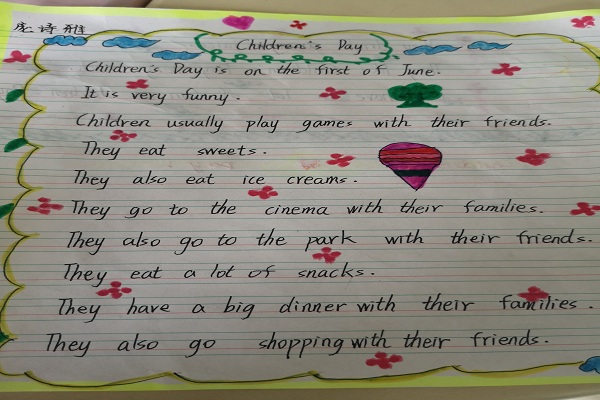 庞诗雅
Children's Day
Children's Day is on the first of June.
It is very funny.
Children usually play games with their friends.
They eat sweets.
They also eat ice creams.
They go to the cinema with their families.
They also go to the park with their friends.
They eat a lot of snacks.
They have a big dinner with their families.
They also go shopping with their friends.